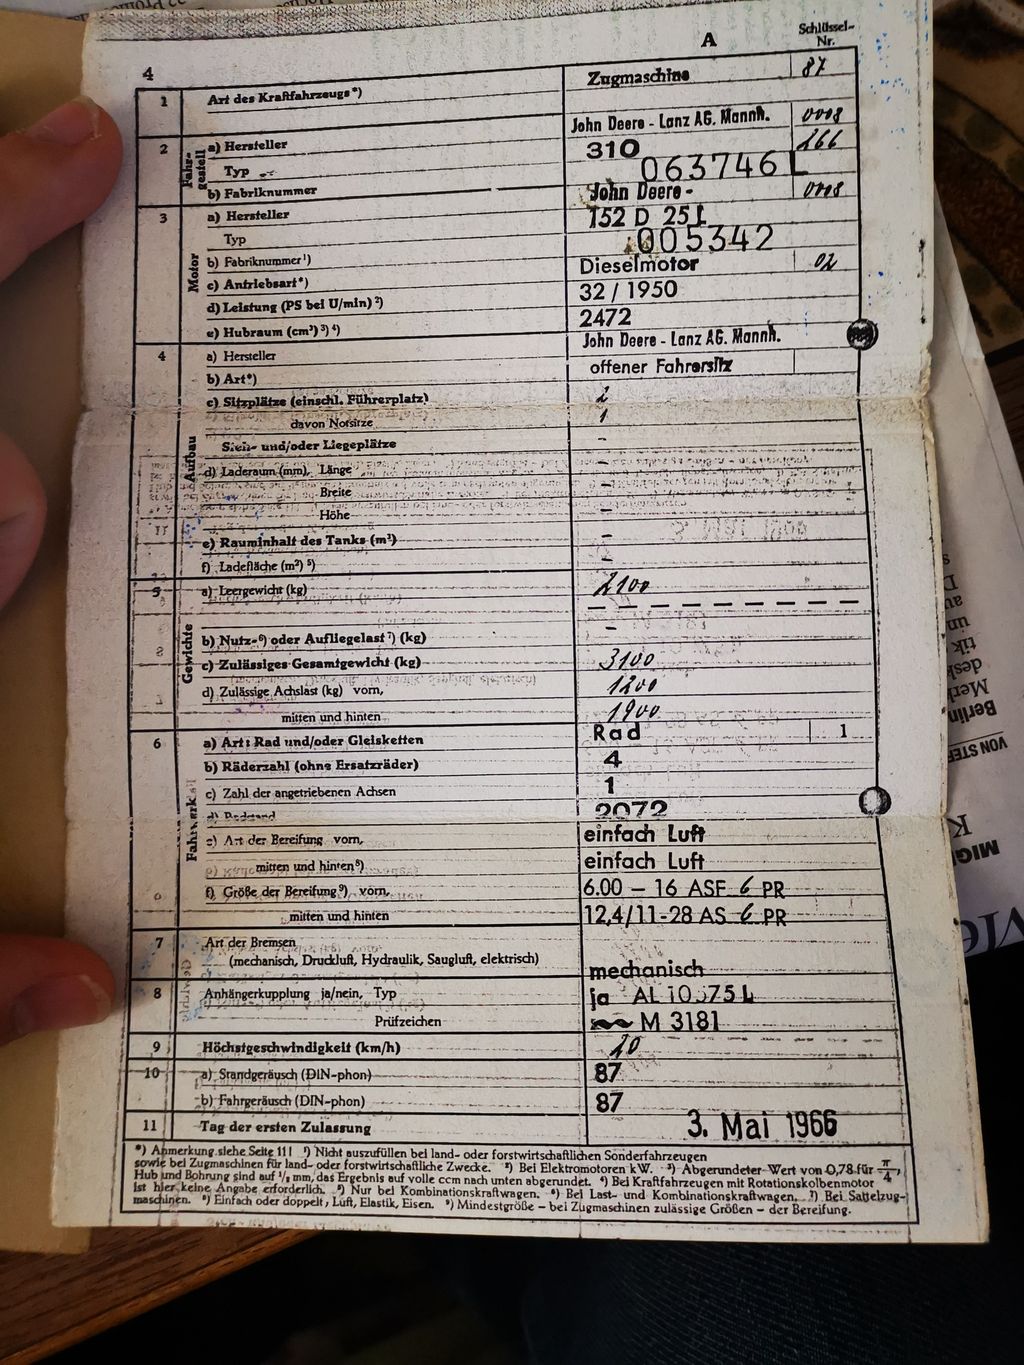 A
Schlüssel-
Nr.
4
1 Art des Kraftfahrzeugs*) Zugmaschine 87
2 Fahrgestell a) Hersteller John Deere - Lanz AG. Mannh. 0008
Typ 310 266
b) Fabriknummer 063746 L
3 Motor a) Hersteller John Deere - 0008
Typ 152 D 25L
b) Fabriknummer¹) 005342
c) Antriebsart*) Dieselmotor 02
d) Leistung (PS bei U/min) ²) 32 / 1950
e) Hubraum (cm³) ³) ⁴) 2472
4 Aufbau a) Hersteller John Deere - Lanz AG. Mannh.
b) Art*) offener Fahrersitz
c) Sitzplätze (einschl. Führerplatz) 2
davon Notsitze 1
Steh- und/oder Liegeplätze -
d) Laderaum (mm), Länge -
Breite -
Höhe -
e) Rauminhalt des Tanks (m³) -
f) Ladefläche (m²) ⁵) -
5 Gewichte a) Leergewicht (kg) 2100
b) Nutz-⁶) oder Aufliegelast⁷) (kg) -
c) Zulässiges Gesamtgewicht (kg) 3100
d) Zulässige Achslast (kg) vorn, 1200
mitten und hinten 1900
6 Fahrwerk a) Art: Rad und/oder Gleisketten Rad 1
b) Räderzahl (ohne Ersatzräder) 4
c) Zahl der angetriebenen Achsen 1
d) Radstand 2072
e) Art der Bereifung vorn, einfach Luft
mitten und hinten⁸) einfach Luft
f) Größe der Bereifung⁹) vorn, 6.00 – 16 ASF 6 PR
mitten und hinten 12,4/11-28 AS 6 PR
7 Art der Bremsen
(mechanisch, Druckluft, Hydraulik, Saugluft, elektrisch) mechanisch
8 Anhängerkupplung ja/nein, Typ ja AL 10 575 L
Prüfzeichen M 3181
9 Höchstgeschwindigkeit (km/h) 20
10 a) Standgeräusch (DIN-phon) 87
b) Fahrgeräusch (DIN-phon) 87
11 Tag der ersten Zulassung 3. Mai 1966
*) Anmerkung siehe Seite 11! ¹) Nicht auszufüllen bei land- oder forstwirtschaftlichen Sonderfahrzeugen
sowie bei Zugmaschinen für land- oder forstwirtschaftliche Zwecke. ²) Bei Elektromotoren kW. ³) Abgerundeter Wert von 0,78 für π/4,
Hub und Bohrung sind auf ¹/₂ mm, das Ergebnis auf volle ccm nach unten abgerundet. ⁴) Bei Kraftfahrzeugen mit Rotationskolbenmotor
ist hier keine Angabe erforderlich. ⁵) Nur bei Kombinationskraftwagen. ⁶) Bei Last- und Kombinationskraftwagen. ⁷) Bei Sattelzug-
maschinen. ⁸) Einfach oder doppelt, Luft, Elastik, Eisen. ⁹) Mindestgröße – bei Zugmaschinen zulässige Größen – der Bereifung.